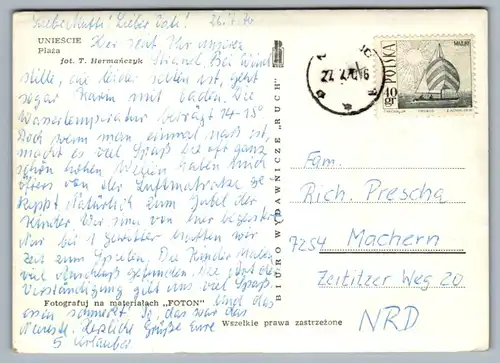 Liebe Mutti! Lieber Vati! 26.7.76
UNIEŚCIE
Plaża
fot. T. Hermańczyk
Hier seht Ihr unseren
Strand. Bei Wind
stille, die leider selten ist, geht
sogar Karin mit baden. Die
Wassertemperatur beträgt 14-15°
Doch wenn man einmal naß ist,
macht es viel Spaß bei oft ganz
schön hohen Wellen haben mich
öfters von der Luftmatratze ge
kippt. Natürlich zum Jubel der
Kinder. Wir sind von hier begeistert
Nur bei 1 Gewitter hatten wir
Zeit zum Spielen. Die Kinder haben
viel Anschluß gefunden. Die
Verständigung gibt uns viel Spaß
Fotografuj na materiałach „FOTON"
Und das
essen schmeckt! So, das war das
Neueste. Herzliche Grüße Eure
5 Urlauber
Wszelkie prawa zastrzeżone
BIURO WYDAWNICZE „RUCH"
27.7.76
POLSKA
40 gr
Fam.
Rich. Prescha
7254 Machern
Zeititzer Weg 20
NRD